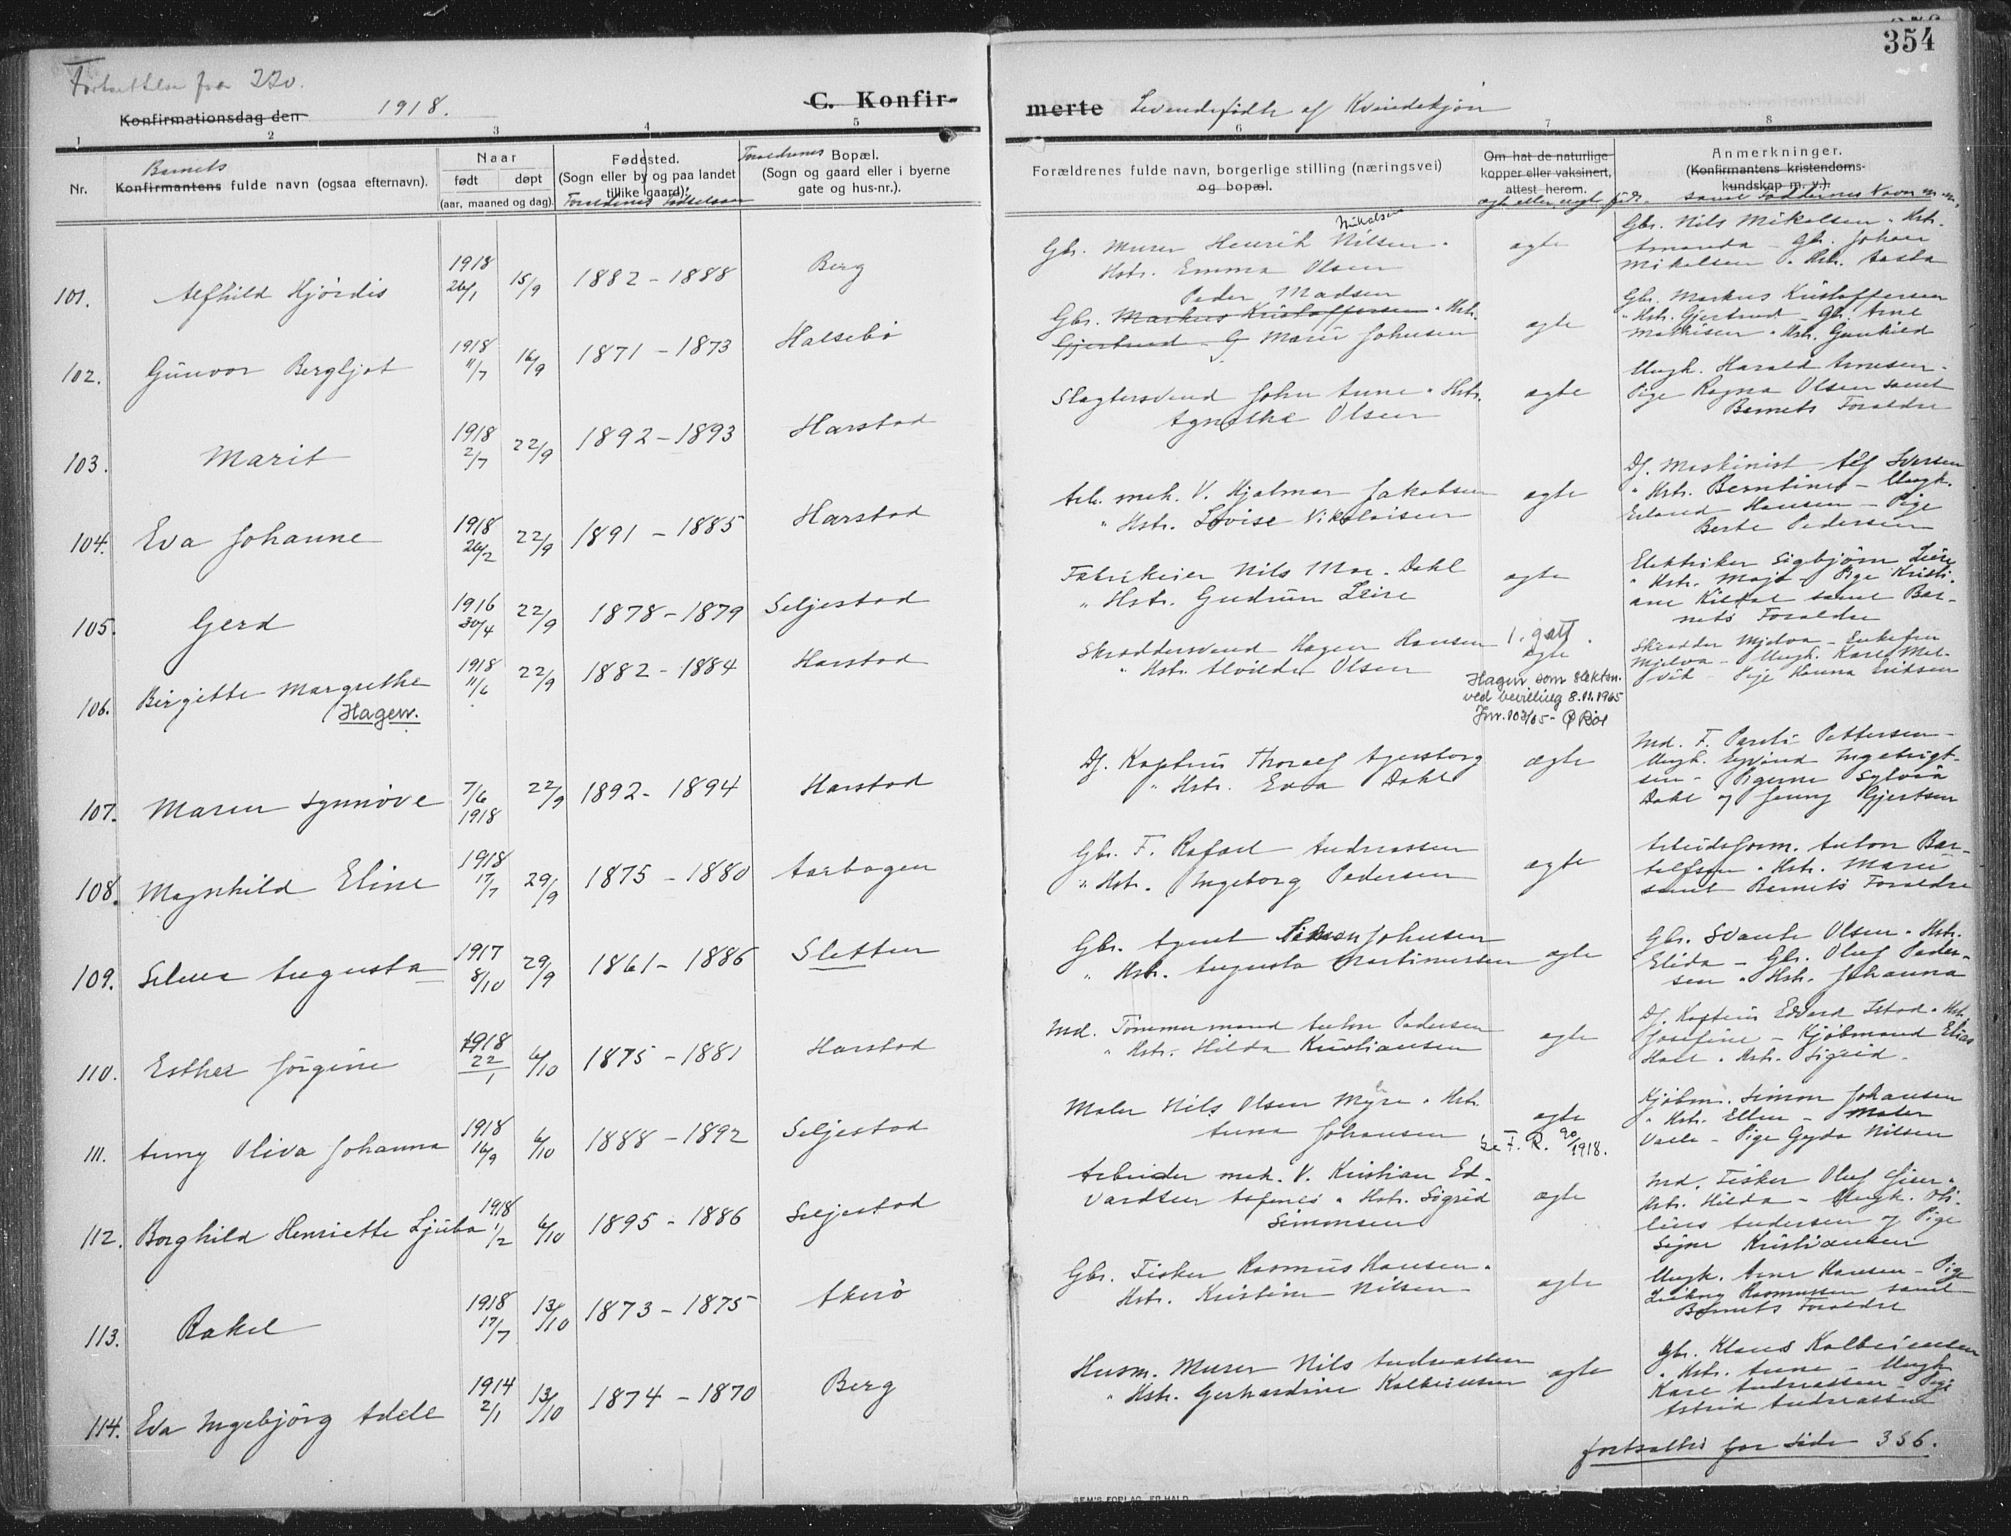 354
Fortsettelse fra 220.
1918.
C. Konfir-
merte Levendefødte af Kvindekjøn
Konfirmationsdag den
1 2 3 4 5 6 7 8
Nr.
Barnets
Konfirmantens fulde navn (ogsaa efternavn).
Naar
født døpt
(aar, maaned og dag)
Fødested.
(Sogn eller by og paa landet
tillike gaard).
Forældrenes Fødselsaar
Forældrenes Bopæl.
(Sogn og gaard eller i byerne
gate og hus-nr.).
Forældrenes fulde navn, borgerlige stilling (næringsvei)
og bopæl.
Om hat de naturlige
kopper eller vaksinert,
attest herom.
ægte eller uægte født.
Anmerkninger.
(Konfirmantens kristendoms-
kundskap m. v.).
samt Faddernes Navn m. m.
101. Alfhild Hjørdis 1918 26/1 15/9 1882 – 1888 Berg
Mikalsen
Gbr. Murer Henrik Nilsen
Hstr. Emma Olsen
ægte
Gbr. Nils Mikalsen, Hst.
Amanda – Gb. Johan
Mikalsen, Hst. Aasta
102. Gunvor Bergljot 1918 11/7 16/9 1871 – 1873 Halsebø
Peder Madsen
Gbr. Markus Kristoffersen, Hst.
Gjertrud – G Marie Johnsen
ægte
Gbr. Markus Kristoffersen
" Hst. Gjertrud – Gb. Arne
Mathisen, Hst. Gunhild
103. Marit 1918 2/7 22/9 1892 – 1893 Harstad
Slagtersvend John Aune, Hst.
Agnethe Olsen
ægte
Ungk. Harald Arnesen –
Pige Ragna Olsen samt
Barnets Foraldre
104. Eva Johanne 1918 26/2 22/9 1891 – 1885 Harstad
Arb. mek. V. Hjalmar Jakobsen
" Hstr. Lovise Nikolaisen
ægte
Df. Maskinist Alf Iversen
" Hst. Berntine – Ungk.
Erland Hansen – Pige
Berte Pedersen
105. Gerd 1916 30/4 22/9 1878 – 1879 Seljestad
Fabrikeier Nils Mar. Dahl
" Hstr. Gudrun Leire
ægte
Elektriker Sigbjørn Leire
" Hst. Maja – Pige Kristi-
ane Kildal samt Bar-
nets Foraldre
106. Birgitte Margrethe 1918 11/6 22/9 1882 – 1884 Harstad
Hagen.
Skræddersvend Hagen Hansen
" Hst. Alvilde Olsen
1. gatt.
ægte
Hagen som slektsn.
ved bevilling 8.11.1965
Jnr. 103/65 –
Skrædder Mjelva – Enkefru
Mjelva – Ungk. Karl Mel-
vik – Pige Hanna Eriksen
107. Maren Synnøve 7/6 1918 22/9 1892 – 1894 Harstad
Df. Kaptein Thoralf Agersborg
" Hstr. Eva Dahl
ægte
Md. F. Pareli Pettersen –
Ungk. Eyvind Ingebrigt-
sen – Pigerne Sylvia
Dahl og Jenny Gjertsen
108. Magnhild Eline 1918 17/7 29/9 1875 – 1880 Aarbogen
Gbr. F. Rafael Andreassen
" Hst. Ingeborg Pedersen
ægte
Arbeidsform. Anton Bar-
tolfsen, Hst. Marie
samt Barnets Foraldre
109. Selma Augusta 1917 8/10 29/9 1861 – 1886 Sletten
Gbr. Agnet Simon Johnsen
" Hst. Augusta Martinussen
ægte
Gbr. Svante Olsen, Hst.
Elida – Gbr. Oluf Peder-
sen, Hst. Johanna
110. Esther Jørgine 1918 22/1 6/10 1875 – 1881 Harstad
Md. Tømmermand Anton Pedersen
" Hst. Hilda Kristiansen
ægte
Df. Kaptein Edvard Istad, Hst.
Josefine – Kjøbmand Elias
, Hst. Sigrid –
111. Anny Oliva Johanna 1918 16/9 6/10 1888 – 1892 Seljestad
Maler Nils Olsen Myre, Hst.
Anna Johansen
ægte
Se F. R. 90/1918.
Kjøbm. Simon Johansen
" Hst. Ellen – Maler
Valle – Pige Gyda Nilsen
112. Borghild Henriette Ljuba 1918 1/2 6/10 1895 – 1886 Seljestad
Arbeider mek. V. Kristian Ed-
vardsen Aafenes, Hst. Sigrid
Simonsen
ægte
Md. Fisker Oluf Geier,
Hst. Hilda – Ungk. Oti-
lius Andersen og Pige
Signe Kristiansen
113. Rakel 1918 17/7 13/10 1873 – 1875 Akerø
Gbr. Fisker Rasmus Hansen,
Hst. Kristine Nilsen
ægte
Ungk. Arne Hansen – Pige
Leikny Rasmussen samt
Barnets Foraldre
114. Eva Ingebjørg Adele 1914 2/1 13/10 1874 – 1870 Berg
Husm. Murer Nils Andreassen
" Hst. Gerhardine Kolbeinsen
ægte
Gbr. Klaus Kolbeinsen
" Hst. Anne – Ungk.
Kare Andreassen – Pige
Astrid Andreassen
fortsattes for side 356.
SEM'S FORLAG, FR.HALD